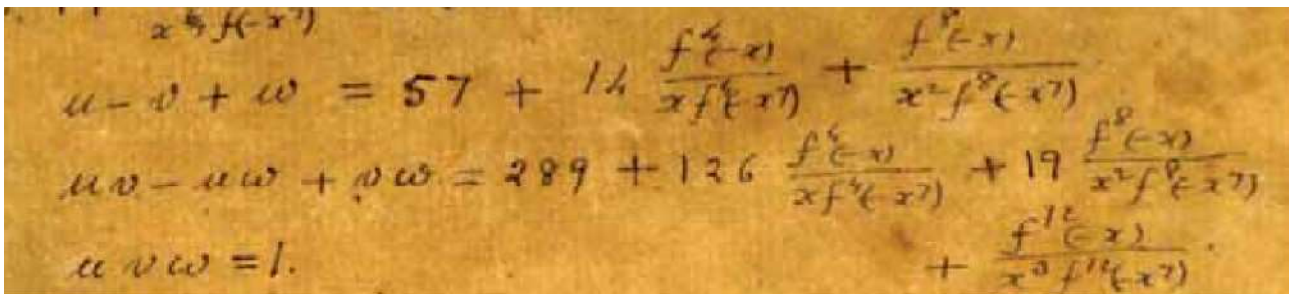 x f(-x⁷)
u - v + w = 57 + 14 f⁴(-x)/xf⁴(-x⁷) + f⁸(-x)/x²f⁸(-x⁷)
uv - uw + vw = 289 + 126 f⁴(-x)/xf⁴(-x⁷) + 19 f⁸(-x)/x²f⁸(-x⁷)
uvw = 1. + f¹²(-x)/x³f¹²(-x⁷).